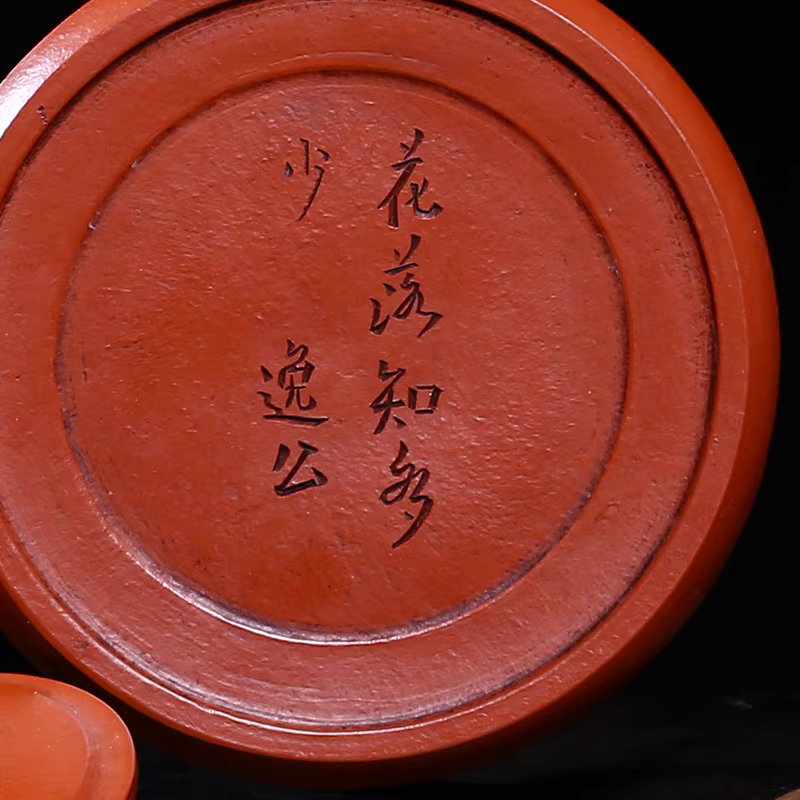 花落知多
少
逸公